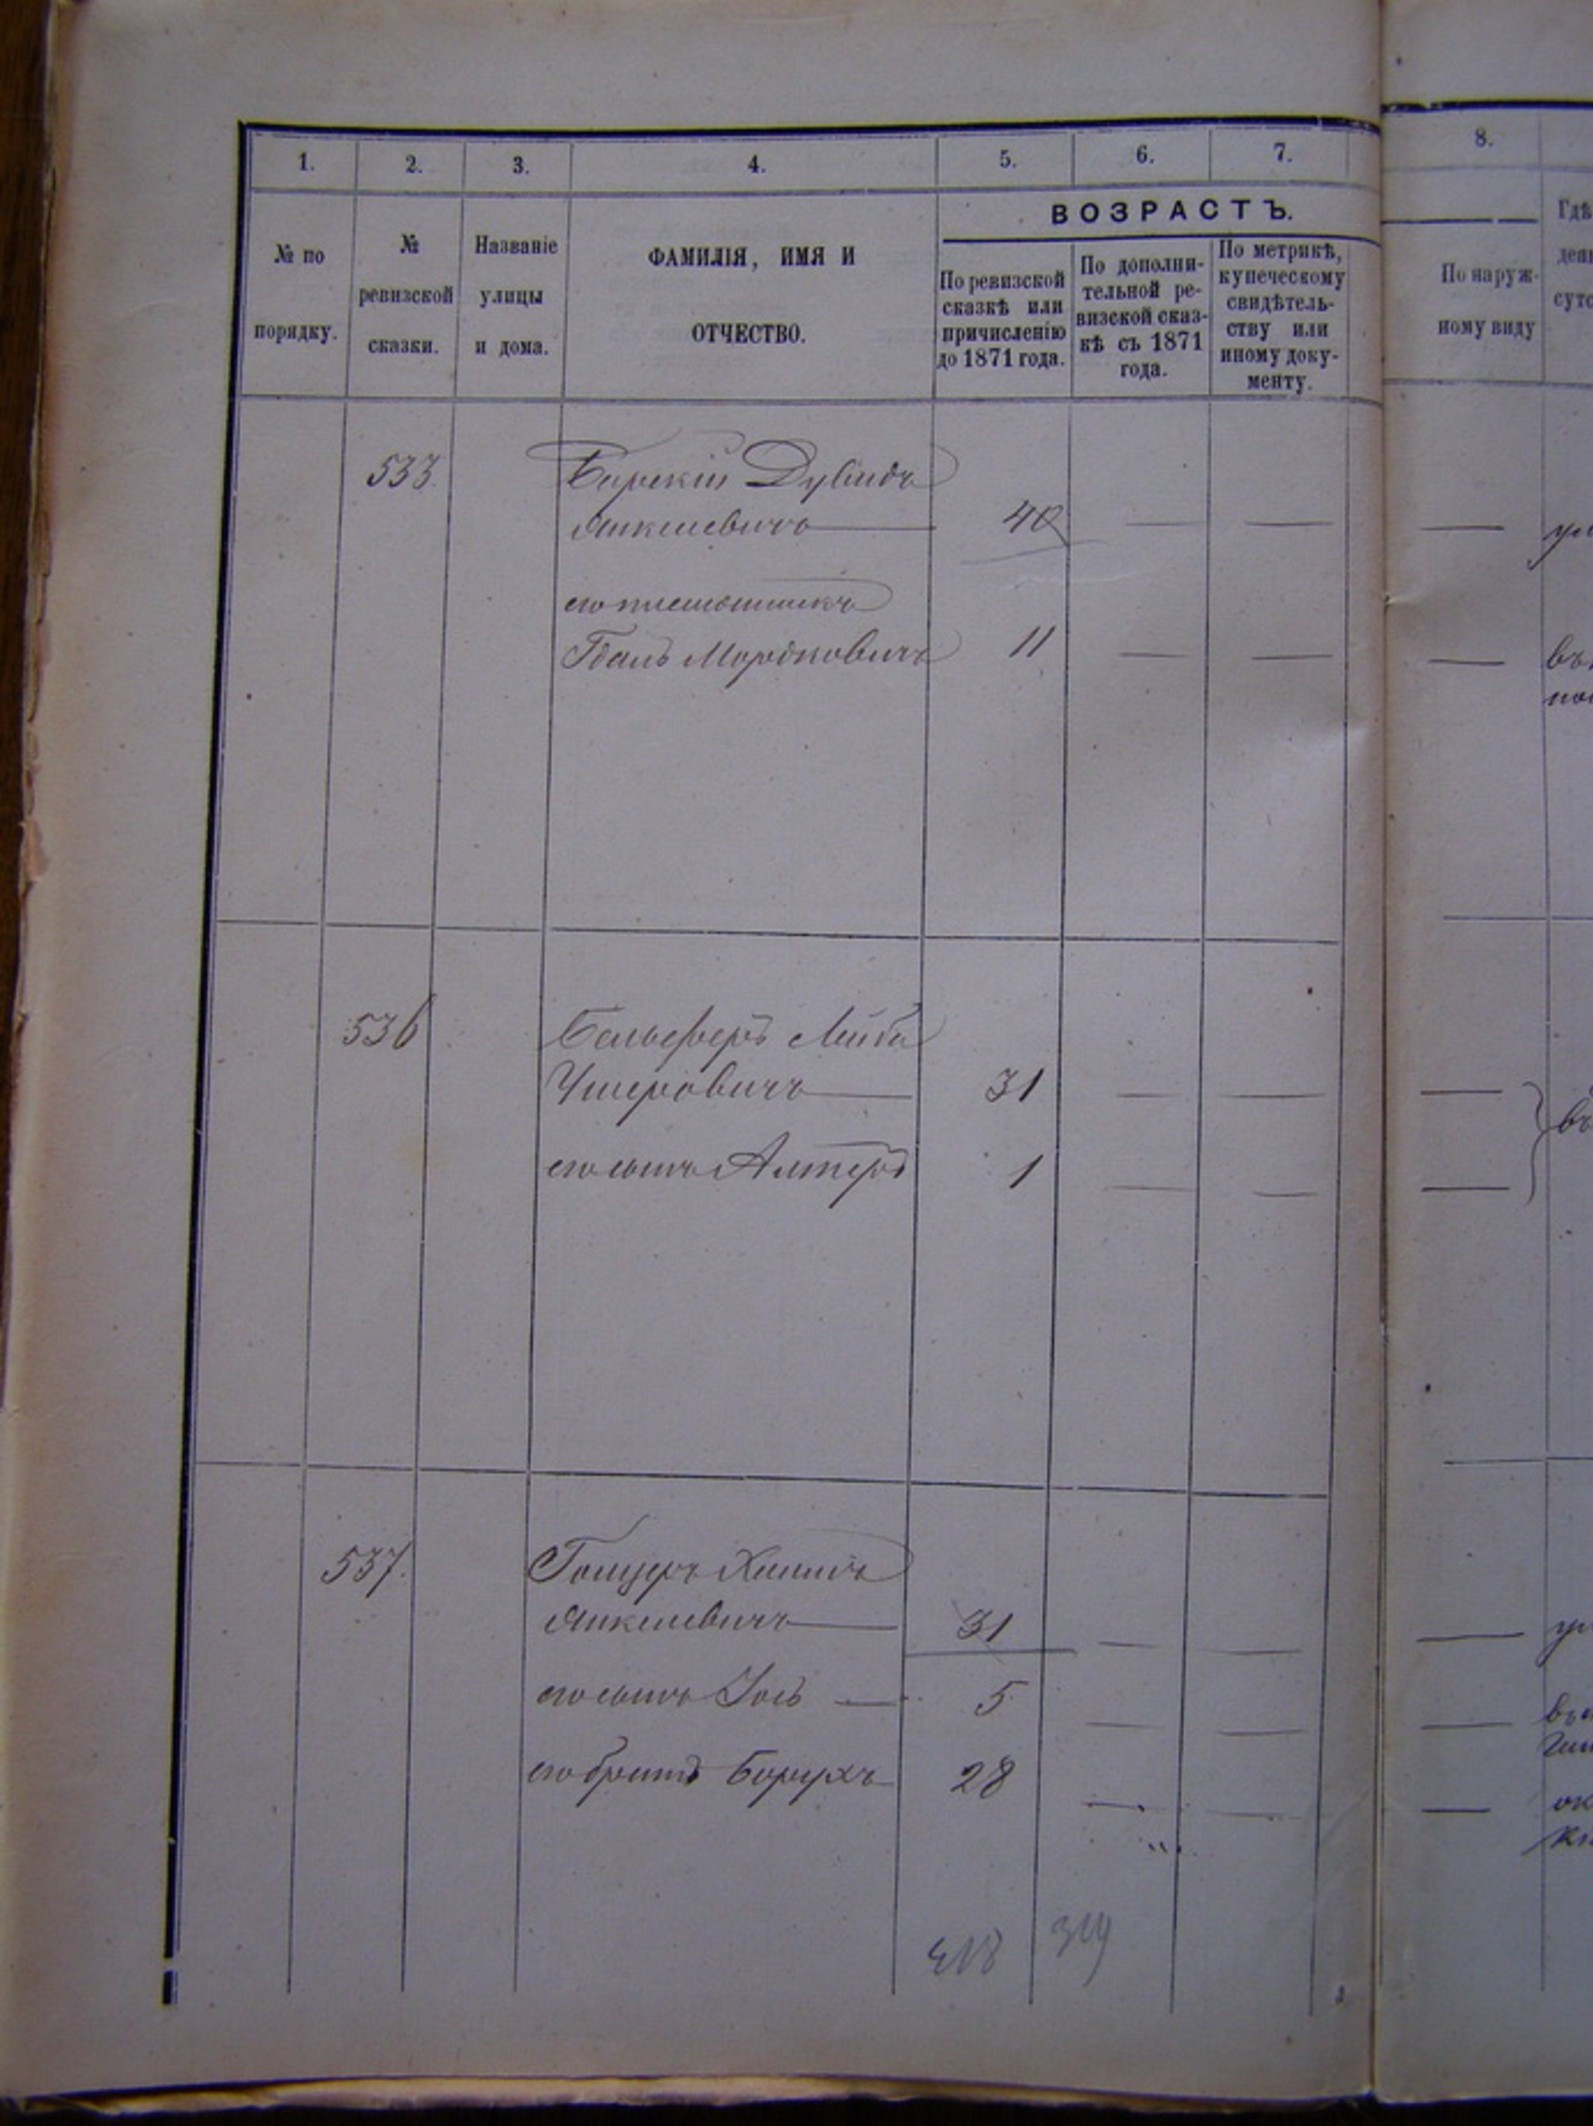 1. 2. 3. 4. 5. 6. 7. 8.
ВОЗРАСТЪ.
№ по порядку.
№ ревизской сказки.
Названіе улицы и дома.
ФАМИЛІЯ, ИМЯ И ОТЧЕСТВО.
По ревизской сказкѣ или причисленію до 1871 года.
По дополнительной ревизской сказкѣ съ 1871 года.
По метрикѣ, купеческому свидѣтельству или иному документу.
По наружному виду
Гдѣ
533. Барскій Дувидъ
Янкелевичъ — 40 — — —
его племянникъ
Гдаль Мордковичъ 11 — — —
536 Бельферъ Лейба
Ушеровичъ — 31 — — —
его сынъ Алтеръ 1 — — —
537.
Янкелевичъ — 31 — — —
его сынъ — 5 — — —
его братъ Борухъ 28 — — —
318 319